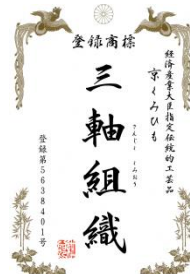 登録商標
経済産業大臣指定伝統的工芸品
京くみひも
三軸組織
登録第5638401号